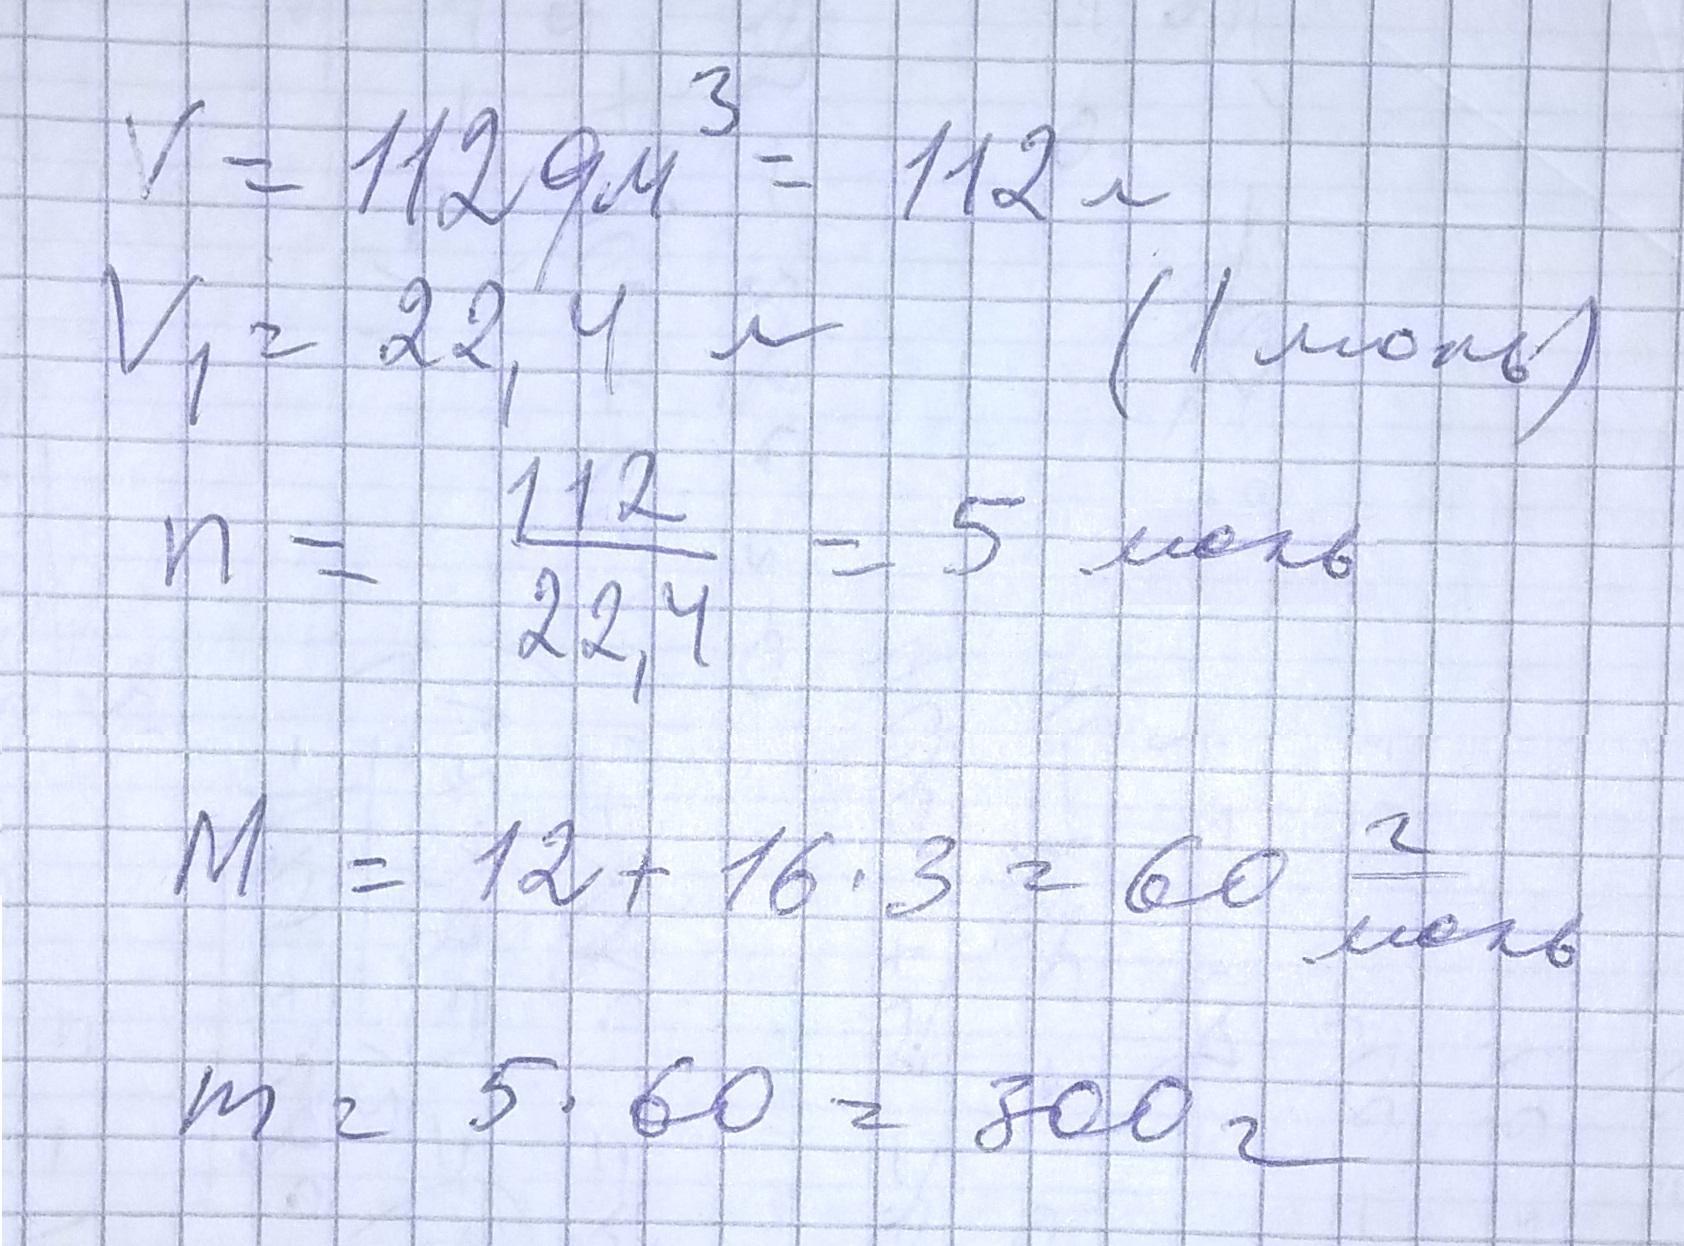 V = 112 дм³ = 112 л
V₁ = 22,4 л (1 моль)
n = 112/22,4 = 5 моль
M = 12 + 16 · 3 = 60 г/моль
m = 5 · 60 = 300 г